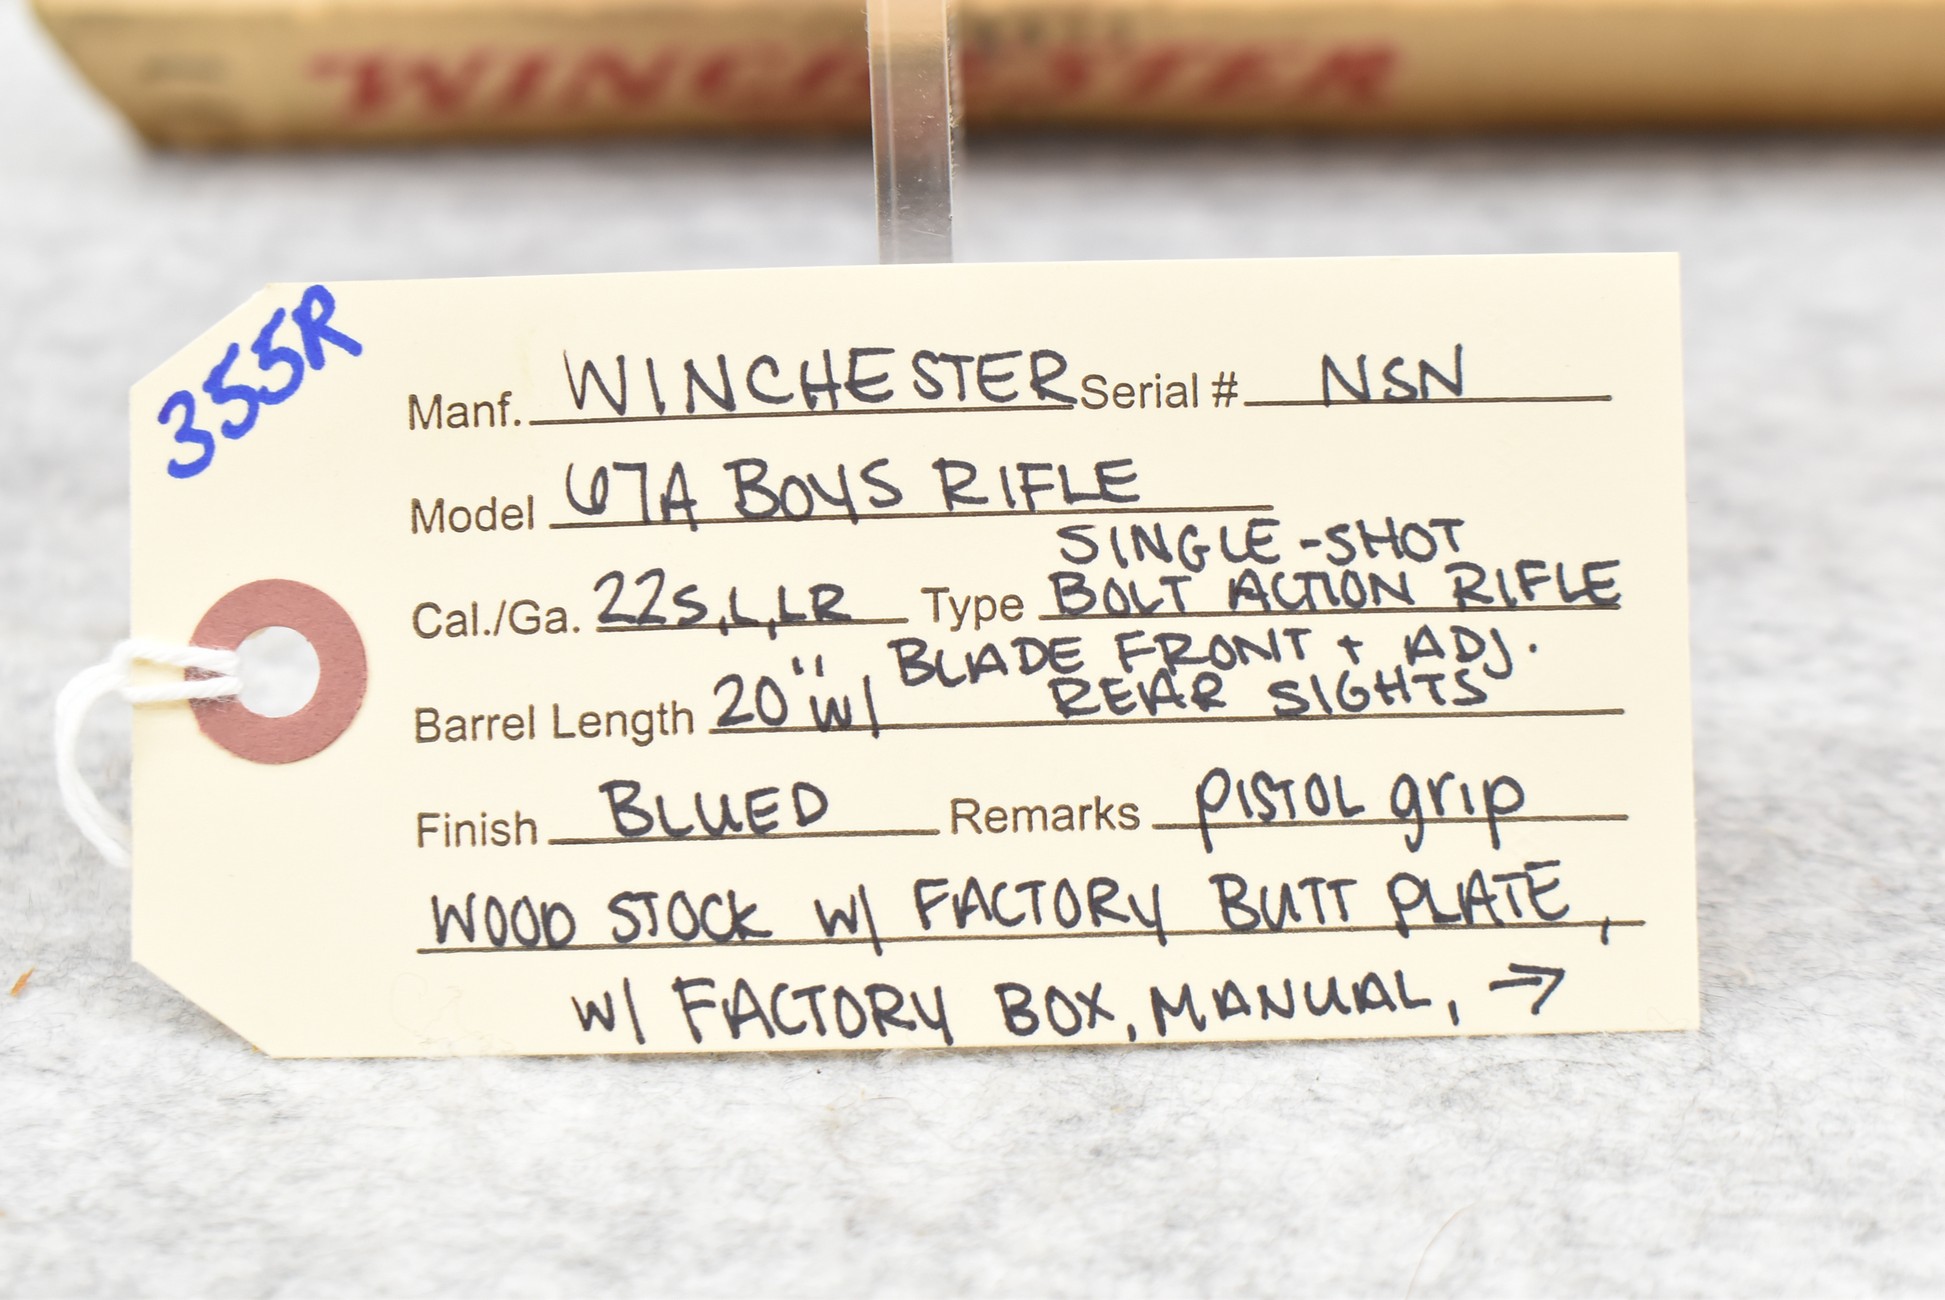 WINCHESTER
355R
Manf. WINCHESTER Serial # NSN
Model 67A BOYS RIFLE
Cal./Ga. 22S,L,LR Type SINGLE-SHOT
BOLT ACTION RIFLE
Barrel Length 20" W/ BLADE FRONT + ADJ.
REAR SIGHTS
Finish BLUED Remarks PISTOL grip
WOOD STOCK W/ FACTORY BUTT PLATE,
W/ FACTORY BOX, MANUAL, →